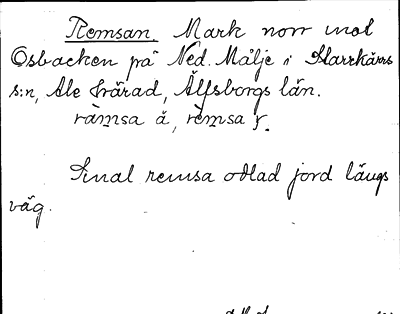 Remsan. Mark norr mot
Osbacken på Ned. Målje i
s:n, Ale härad, Älfsborgs län.
ràmsa å, rèmsa y.
Smal remsa odlad jord längs
väg.